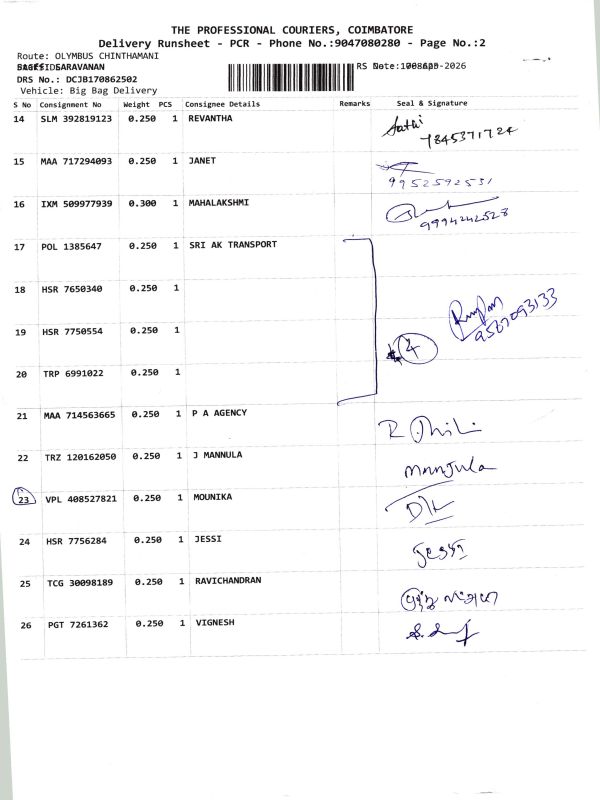 THE PROFESSIONAL COURIERS, COIMBATORE
Delivery Runsheet - PCR - Phone No.:9047080280 - Page No.:2
Route: OLYMBUS CHINTHAMANI
SARAVANAN
DRS No.: DCJB170862502
Vehicle: Big Bag Delivery
S No Consignment No Weight PCS Consignee Details Remarks Seal & Signature
14 SLM 392819123 0.250 1 REVANTHA Sathi
7845371724
15 MAA 717294093 0.250 1 JANET
9952592531
16 IXM 509977939 0.300 1 MAHALAKSHMI
9994242528
17 POL 1385647 0.250 1 SRI AK TRANSPORT
18 HSR 7650340 0.250 1
9587093133
19 HSR 7750554 0.250 1
4
20 TRP 6991022 0.250 1
21 MAA 714563665 0.250 1 P A AGENCY
22 TRZ 120162050 0.250 1 J MANNULA Manjula
23 VPL 408527821 0.250 1 MOUNIKA
24 HSR 7756284 0.250 1 JESSI
25 TCG 30098189 0.250 1 RAVICHANDRAN
26 PGT 7261362 0.250 1 VIGNESH